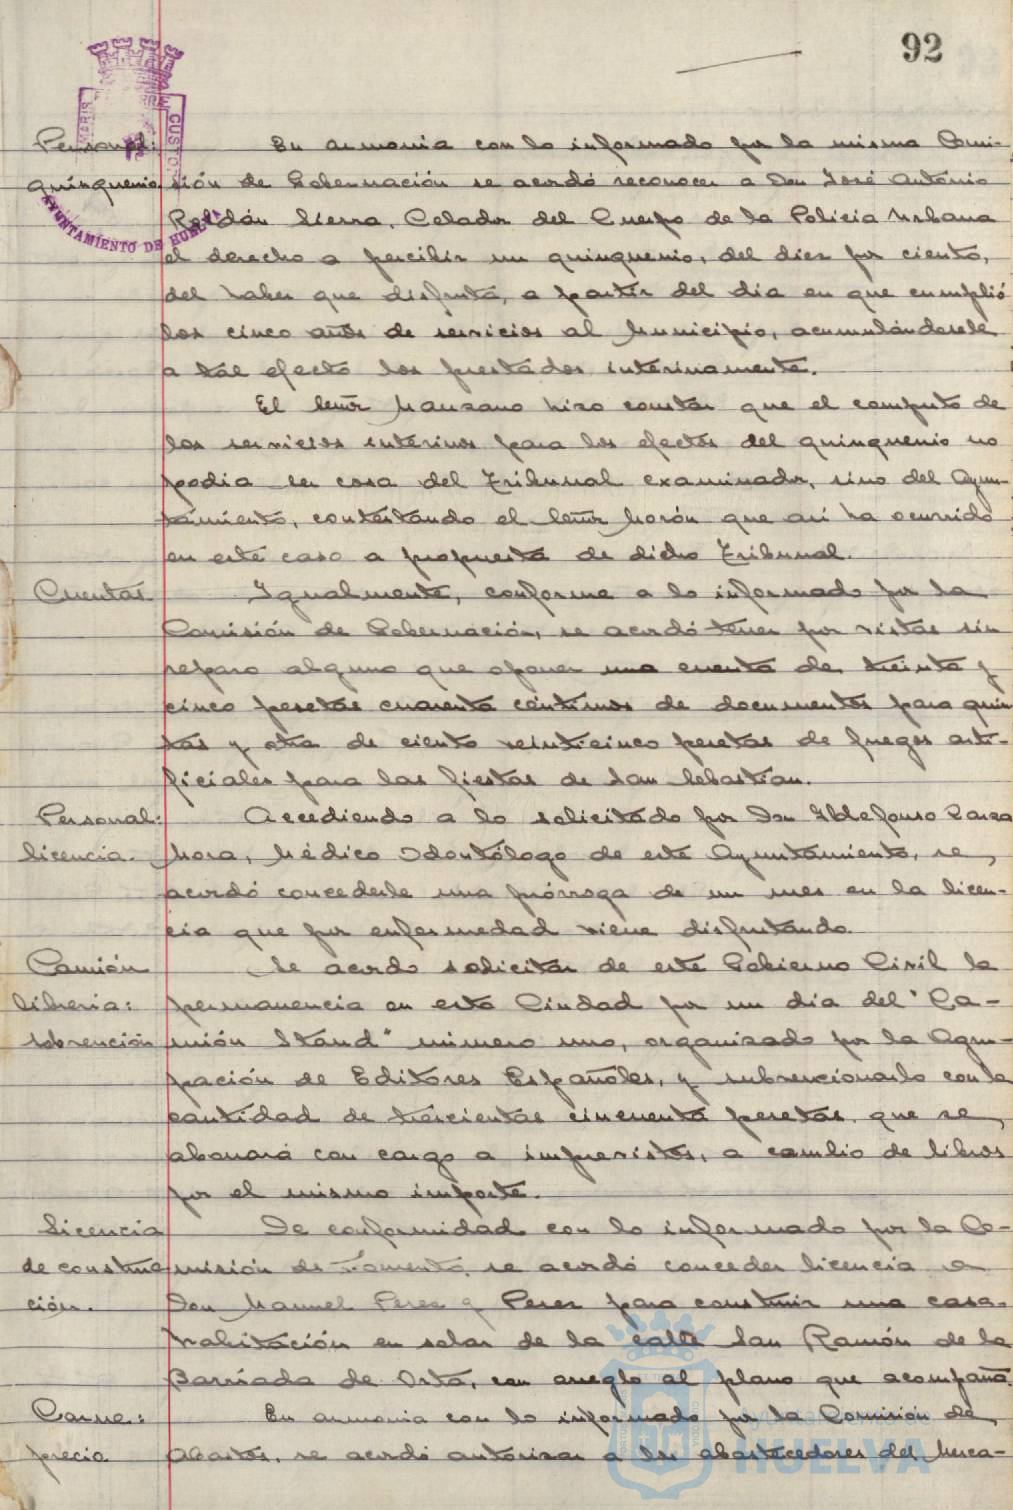 92
Personal:
quinquenio
En armonia con lo informado por la misma Comi-
sión de Gobernación se acordó reconocer a Don José Antonio
Roldán Sierra, Celador del Cuerpo de la Policia Urbana
el derecho a percibir un quinquenio, del diez por ciento,
del haber que disfruta, a partir del dia en que cumplió
los cinco años de servicios al Municipio, acumulándosele
a tal efecto los prestados interinamente.
El Señor Manzano hizo constar que el computo de
los servicios interinos para los efectos del quinquenio no
podia ser cosa del Tribunal examinador, sino del Ayun-
tamiento, contestando el Señor Morón que asi ha ocurrido
en este caso a propuesta de dicho Tribunal.
Cuentas
Igualmente, conforme a lo informado por la
Comisión de Gobernación, se acordó tener por vistas sin
reparo alguno que oponer una cuenta de treinta y
cinco pesetas cuarenta centimos de documentos para quin-
tas y otra de ciento veinticinco pesetas de fuegos arti-
ficiales para las fiestas de San Sebastian.
Personal:
licencia.
Accediendo a lo solicitado por Don Ildefonso Garza
Mora, Médico Odontólogo de este Ayuntamiento, se,
acordó concederle una prórroga de un mes en la licen-
cia que por enfermedad viene disfrutando.
Camión
libreria:
subvención
Se acordo solicitar de este Gobierno Civil la
permanencia en esta Ciudad por un dia del "Ca-
mión Stand" número uno, organizado por la Agru-
pación de Editores Españoles, y subvencionarlo con la
cantidad de trescientas cincuenta pesetas que se,
abonará con cargo a imprevistos, a cambio de libros
por el mismo importe.
Licencia
de construc
ción.
De conformidad con lo informado por la Co-
misión de Fomento, se acordó conceder licencia a
Don Manuel Perez y Perez para construir una casa-
habitación en solar de la calle San Ramón de la
Barriada de Orta, con arreglo al plano que acompaña.
Carne:
precio
En armonia con lo informado por la Comisión de,
Abastos, se acordó autorizar a los abastecedores del Merca-
AYUNTAMIENTO DE HUELVA
Ayuntamiento de
HUELVA